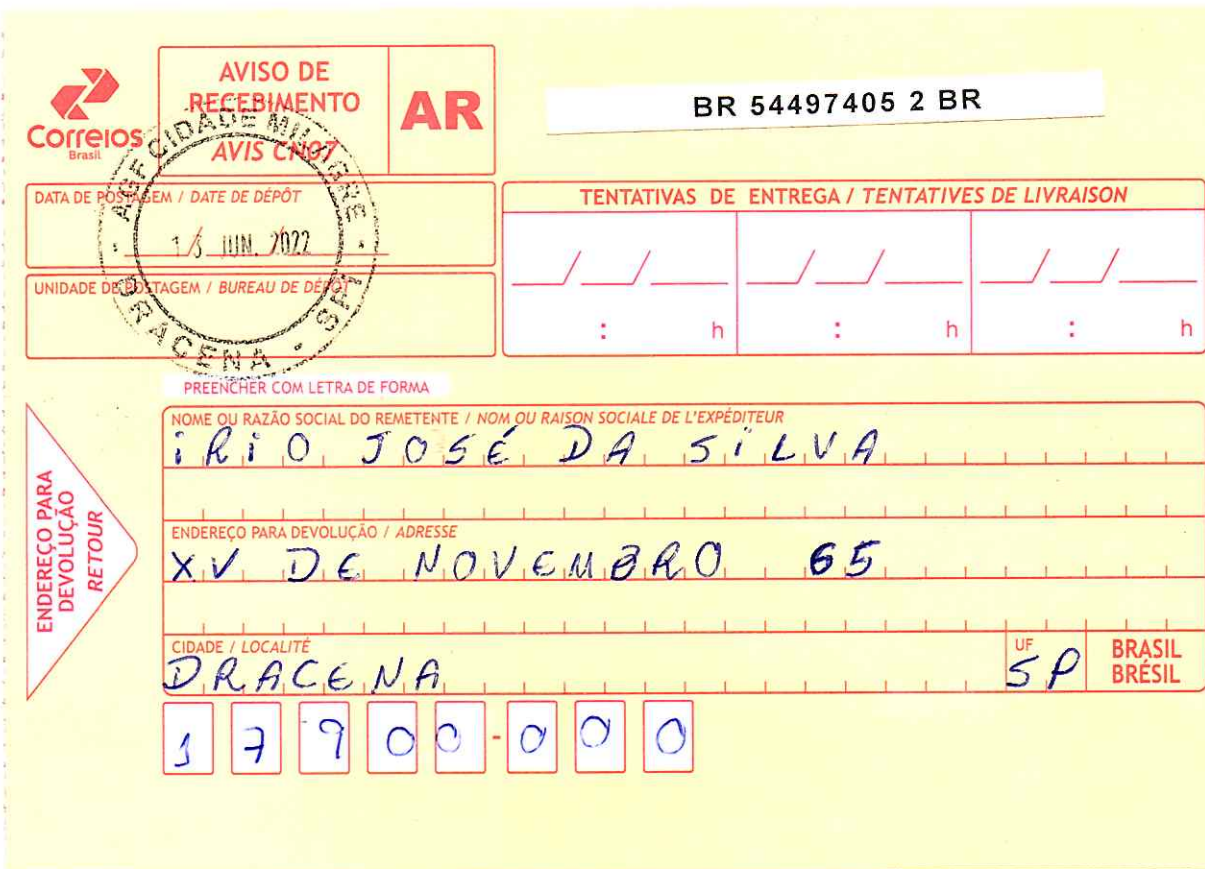 Correios
Brasil
AVISO DE
RECEBIMENTO
AVIS CN07
AR
BR 54497405 2 BR
AGF CIDADE MILAGRE
DRACENA - SPI
DATA DE POSTAGEM / DATE DE DÉPÔT
JUN. 2022
UNIDADE DE POSTAGEM / BUREAU DE DÉPÔT
TENTATIVAS DE ENTREGA / TENTATIVES DE LIVRAISON
/ / / / / /
: h : h : h
PREENCHER COM LETRA DE FORMA
ENDEREÇO PARA
DEVOLUÇÃO
RETOUR
NOME OU RAZÃO SOCIAL DO REMETENTE / NOM OU RAISON SOCIALE DE L'EXPÉDITEUR
iRiO JOSÉ DA SiLVA
ENDEREÇO PARA DEVOLUÇÃO / ADRESSE
XV DE NOVEMBRO 65
CIDADE / LOCALITÉ
DRACENA
UF
SP
BRASIL
BRÉSIL
17900-000